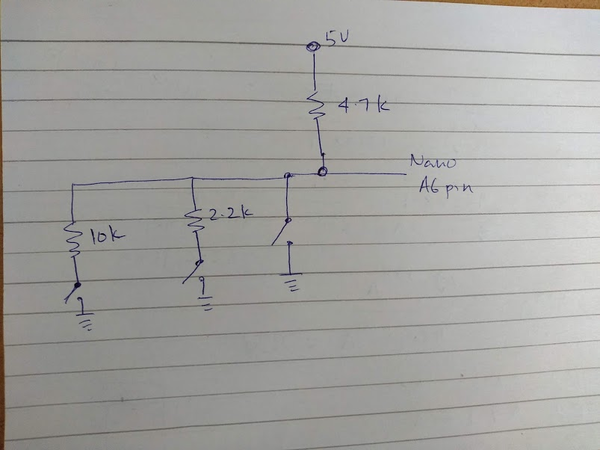 5V
4.7k
Nano
A6 pin
2.2k
10k